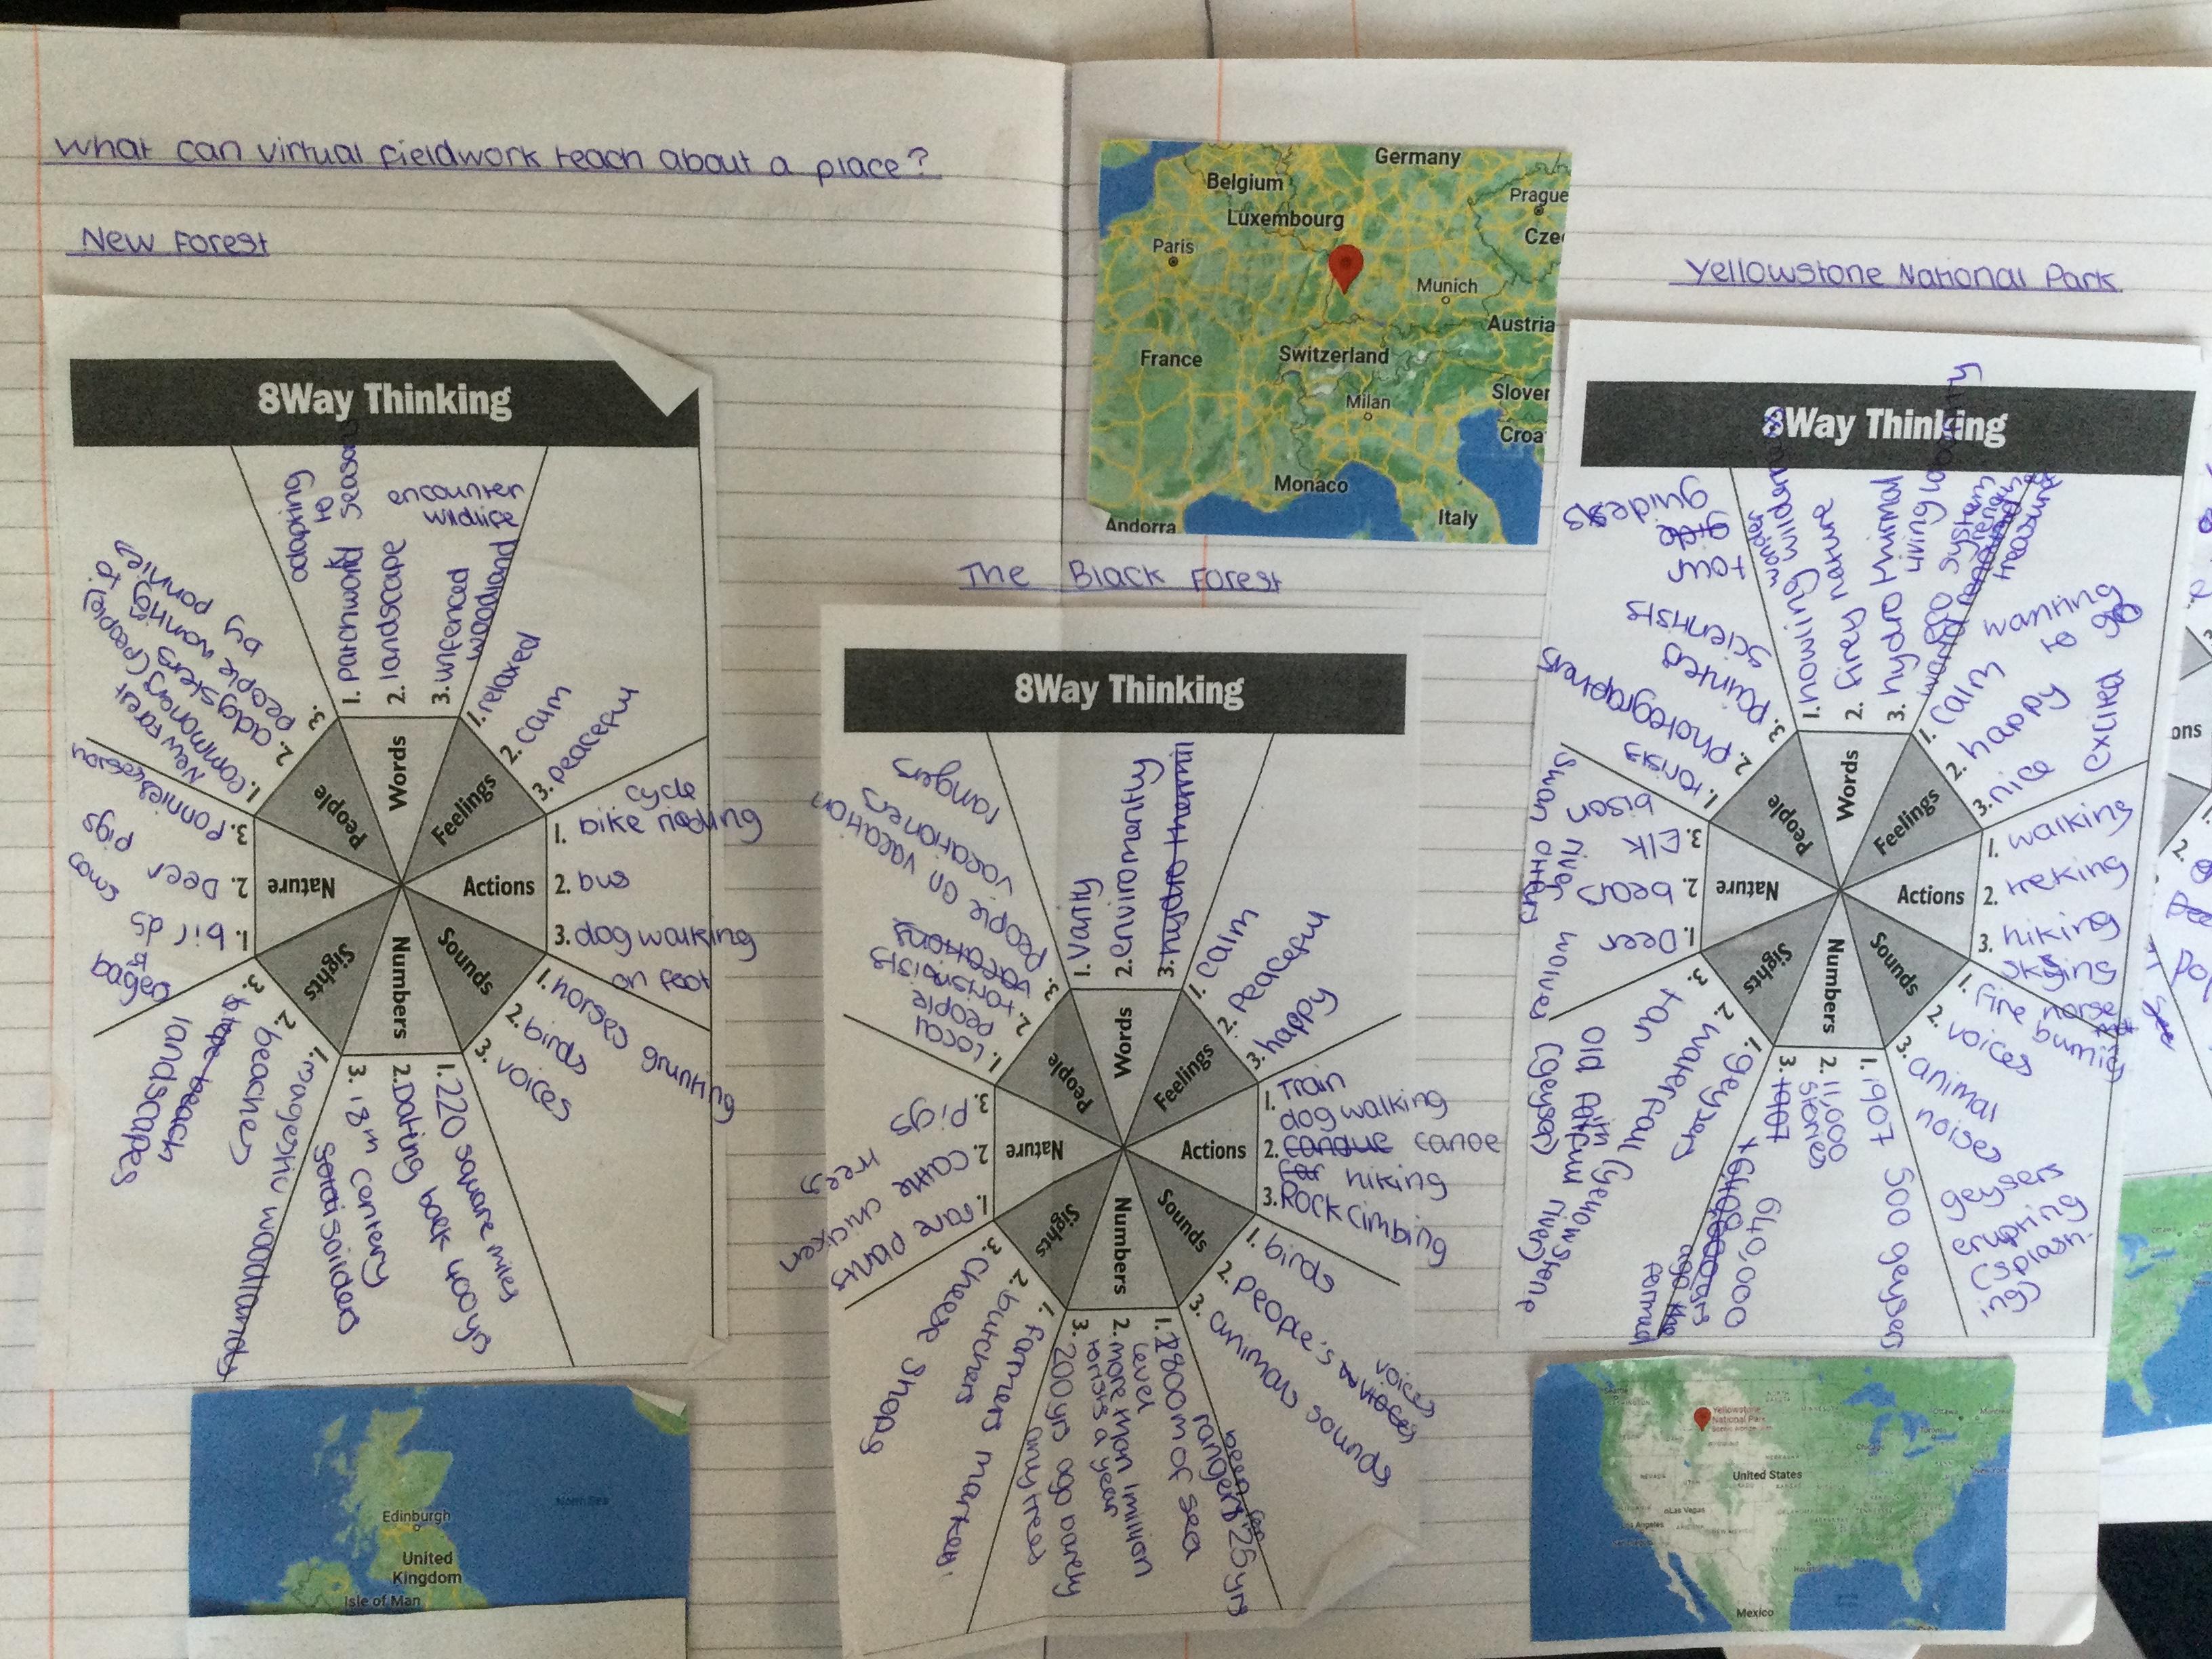 What can virtual fieldwork teach about a place?
New Forest
8Way Thinking
Words
1. patchwork
2. landscape
3. unfenced
woodland
adapting
to
seasons
encounter
wildlife
Feelings
1. relaxed
2. calm
3. peaceful
Actions
cycle
1. bike riding
2. bus
3. dog walking
on foot
Sounds
1. horses
grunting
2. birds
3. voices
Numbers
1. 220 square miles
2. Dating back 400 yrs
3. 18m century
Sights
1. magestic woodlands
2. beaches
3.
landscapes
Nature
1. birds
2. Deer
3. Ponnies
pigs
cows
People
1. commoners (people)
New Forest
2. adgsters
3. people wanning to
by ponnie
Edinburgh
United
Kingdom
Isle of Man
North Sea
Germany
Belgium
Luxembourg
Prague
Paris
Cze
Munich
Austria
France
Switzerland
Milan
Slover
Croa
Monaco
Andorra
Italy
The Black Forest
8Way Thinking
Words
1. Varity
2. enviromentty
3. hydro thermil
Feelings
1. calm
2. Peaceful
3. happy
Actions
1. Train
dog walking
2. canoe
hiking
3. Rock cimbing
Sounds
1. birds
2. people's voices
3. animals sounds
Numbers
1. 1800m of sea
level
2. more than 1million
torists a year
3. 200 yrs ago barely
any trees
been
rangers 25 yrs
Sights
1. farmers market
2. butchers
3. cheese shops
Nature
1. rare plants
2. cattle
3. Pigs
chicken
trees
People
1. Local
people
2. torisnoists
3. people on vacation
vacationers
rangers
Yellowstone National Park
8Way Thinking
Words
1.
2. firey nature
3. hydro thurmal
living
eco system
wonder
Feelings
1. calm
2. happy
3. nice
wanning
to go
excited
Actions
1. walking
2. treking
3. hiking
skiing
Sounds
1. fire
horse
2. voices
3. animal
noises
geysers
erupting
(splash-
ing)
Numbers
1. 1907
2. 11,000
stories
3. 1907
500 geysers
640,000
formed
Sights
1. geysers
2. waterfall (yellowstone river)
3.
Old
(geyser)
Nature
1. Deer
2. bears
3. Elk
bison
wolves
river otters
Swan
People
1. torists
2. photographers
3. painters
scientists
tour
guides
Yellowstone
National Park
United States
Las Vegas
Mexico